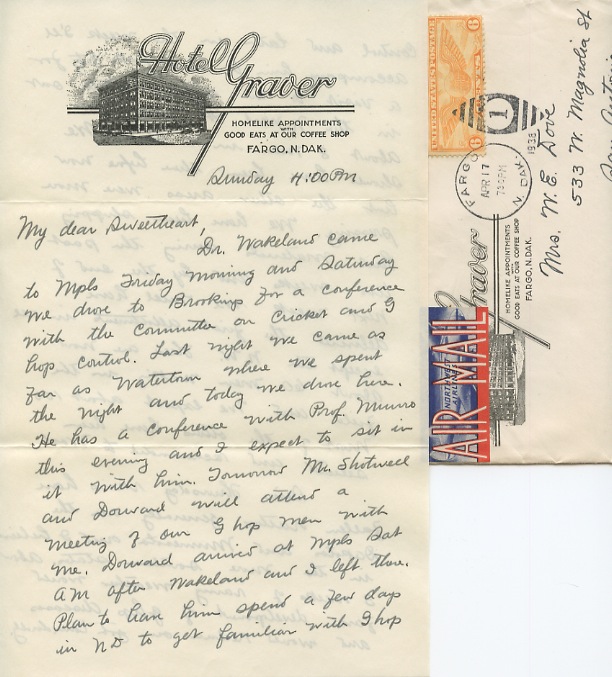 Hotel Graver
HOMELIKE APPOINTMENTS
WITH
GOOD EATS AT OUR COFFEE SHOP
FARGO, N. DAK.
Sunday 4:00 PM
My dear Sweetheart,
Dr. Wakeland came
to Mpls Friday Morning and Saturday
we drove to Brookings for a conference
with the Committee on Cricket and G
hop control. Last night we came as
far as Watertown where we spent
the night and today we drove here.
He has a conference with Prof. Munro
this evening and I expect to sit in
it with him. Tomorrow Mr. Shotwell
and Dorward will attend a
meeting of our G hop men with
me. Dorward arrived at Mpls Sat
AM after Wakeland and I left there.
Plan to have him spend a few days
in ND to get familiar with G hop
UNITED STATES POSTAGE
6 6
1
FARGO
APR 17
7 30 PM
1938
N. DAK.
Mrs. W. E. Dove
533 W. Magnolia St
San
Graver
HOMELIKE APPOINTMENTS
WITH
GOOD EATS AT OUR COFFEE SHOP
FARGO, N. DAK.
AIR MAIL
NORTHWEST
AIRLINES